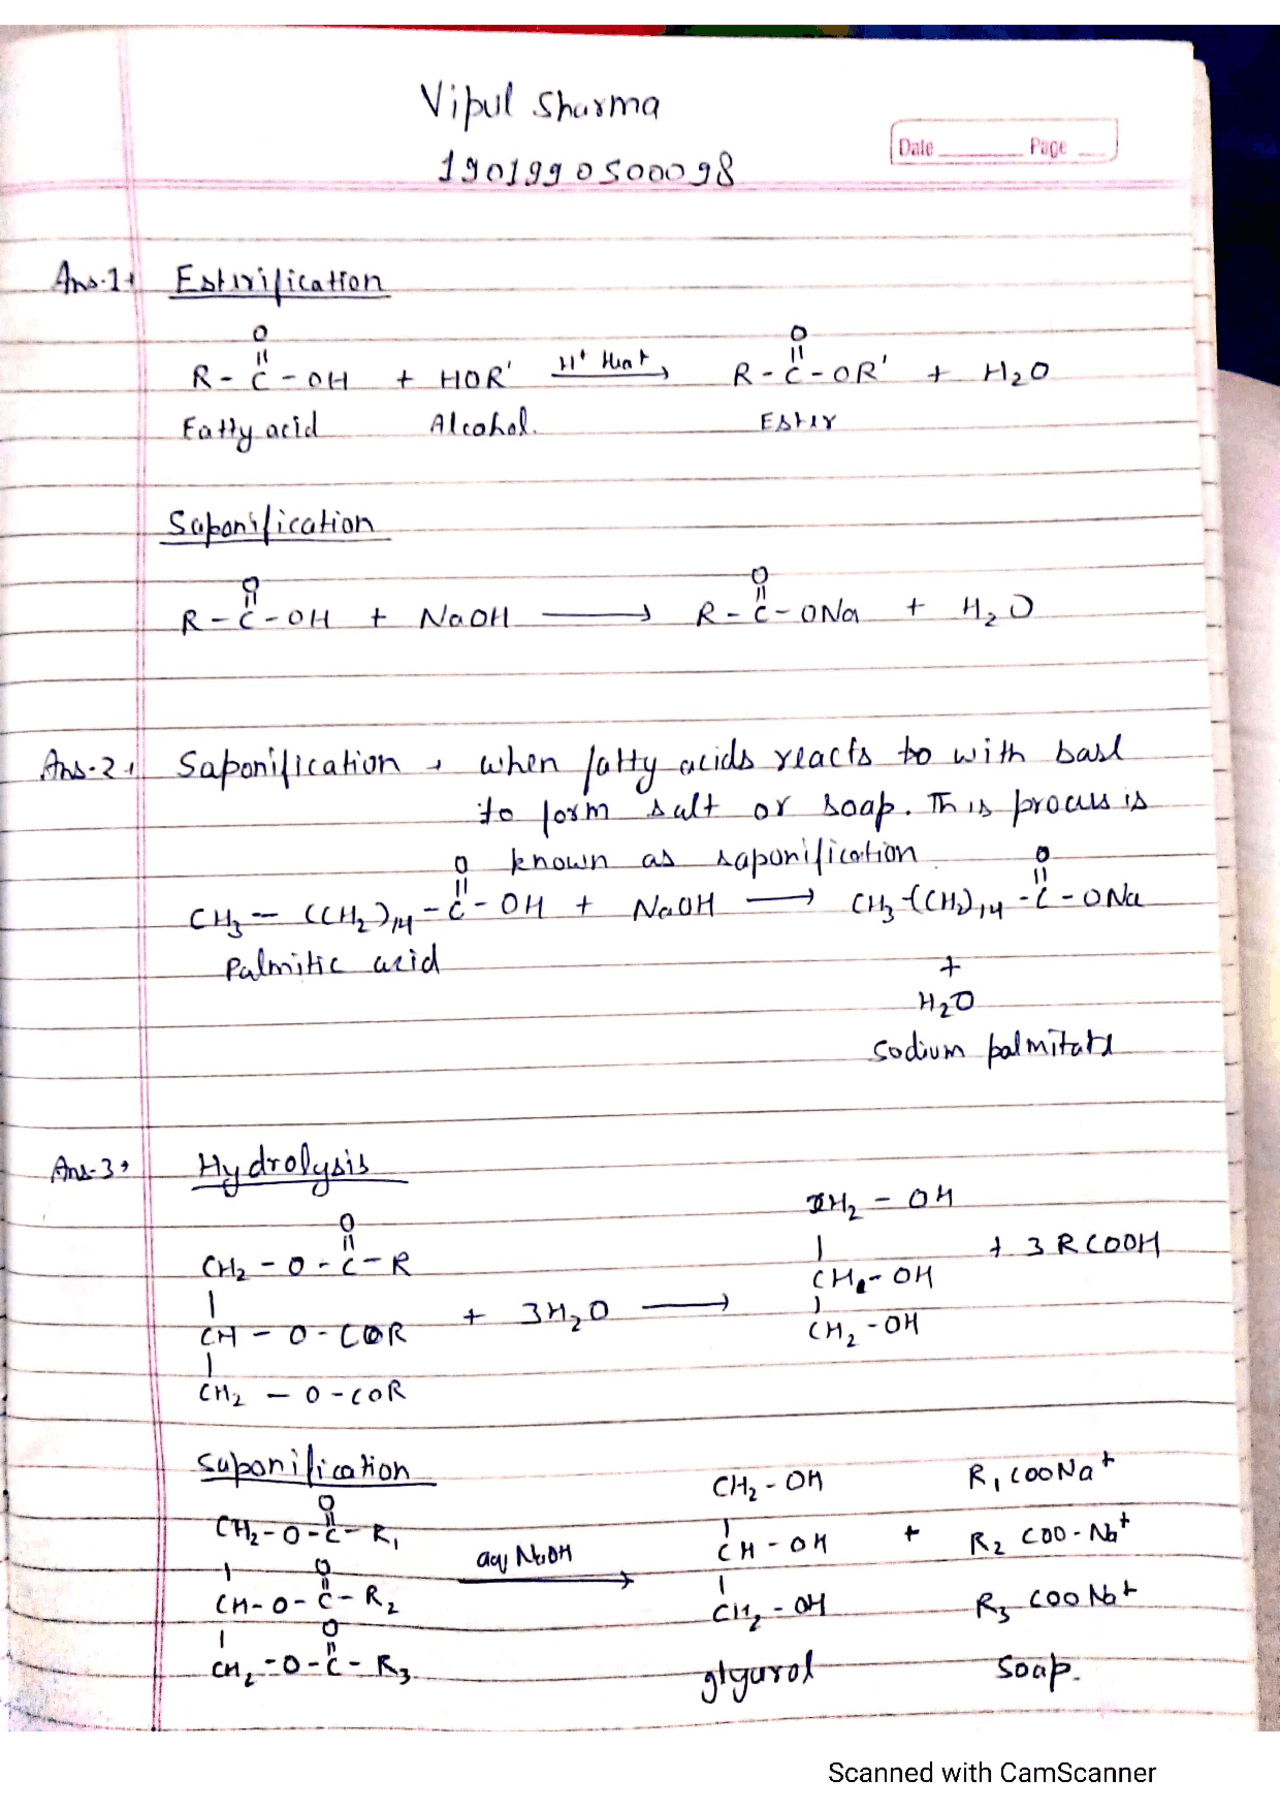 Vipul Sharma
1901990500098
Date Page
Ans.1→ Estirification
O O
|| ||
R - C - OH + HOR' H+ Heat → R - C - OR' + H2O
Fatty acid Alcohol. Ester
Saponification
O O
|| ||
R - C - OH + NaOH → R - C - ONa + H2O
Ans-2→ Saponification → when fatty acids reacts to with base
to form salt or soap. This process is
known as saponification.
O O
|| ||
CH3 - (CH2)14 - C - OH + NaOH → CH3-(CH2)14 - C - ONa
Palmitic acid
+
H2O
sodium palmitate
Ans-3→ Hydrolysis
O
||
CH2 - O - C - R CH2 - OH
| | + 3 RCOOH
CH - O - COR + 3H2O → CH - OH
| |
CH2 - O - COR CH2 - OH
Saponification
O
||
CH2 - O - C - R1 CH2 - OH R1 COONa+
| O |
|| aq NaOH →
CH - O - C - R2 CH - OH + R2 COO-Na+
| O |
||
CH2 - O - C - R3 CH2 - OH R3 COONa+
glycerol soap.
Scanned with CamScanner